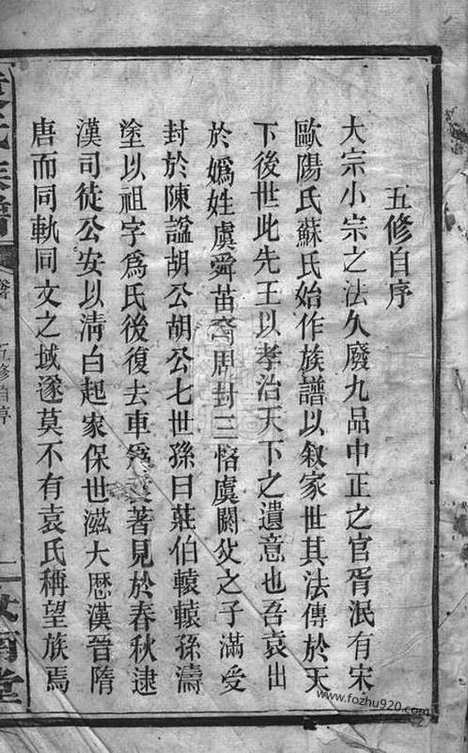 五修自序
大宗小宗之法久廢九品中正之官胥泯有宋
歐陽氏蘇氏始作族譜以叙家世其法傳於天
下後世此先王以孝治天下之遺意也吾袁出
於嬀姓虞舜苗裔周封三恪虞閼父之子滿受
封於陳諡胡公胡公七世孫曰莊伯轅轅孫濤
塗以祖字爲氏後復去車爲袁著見於春秋逮
漢司徒公安以清白起家保世滋大歷漢晉隋
唐而同軌同文之域遂莫不有袁氏稱望族焉
袁氏族譜
五修自序
一
堂
www.fozhu920.com